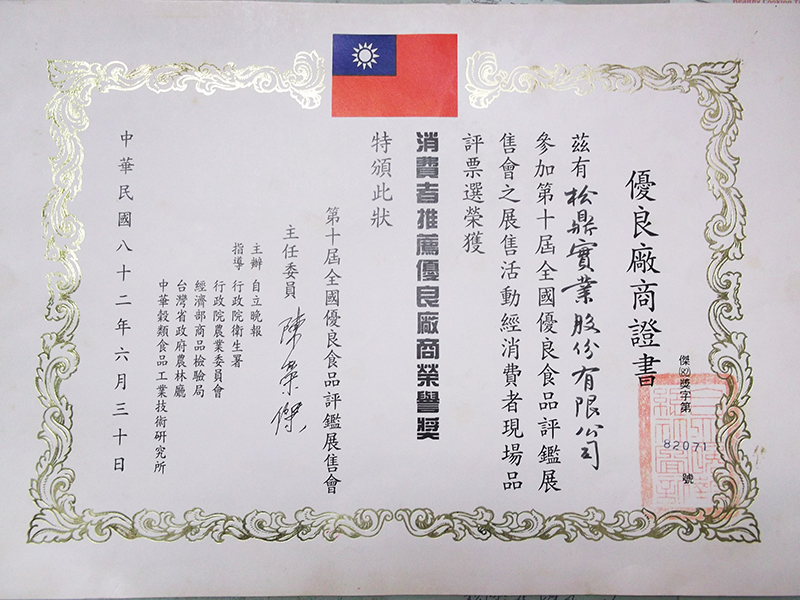 優良廠商證書
傑㊒獎字第 82071 號
茲有松鼎實業股份有限公司
參加第十屆全國優良食品評鑑展
售會之展售活動經消費者現場品
評票選榮獲
消費者推薦優良廠商榮譽獎
特頒此狀
第十屆全國優良食品評鑑展售會
主任委員 陳榮傑
主辦 自立晚報
指導 行政院衛生署
行政院農業委員會
經濟部商品檢驗局
台灣省政府農林廳
中華穀類食品工業技術研究所
中華民國八十二年六月三十日